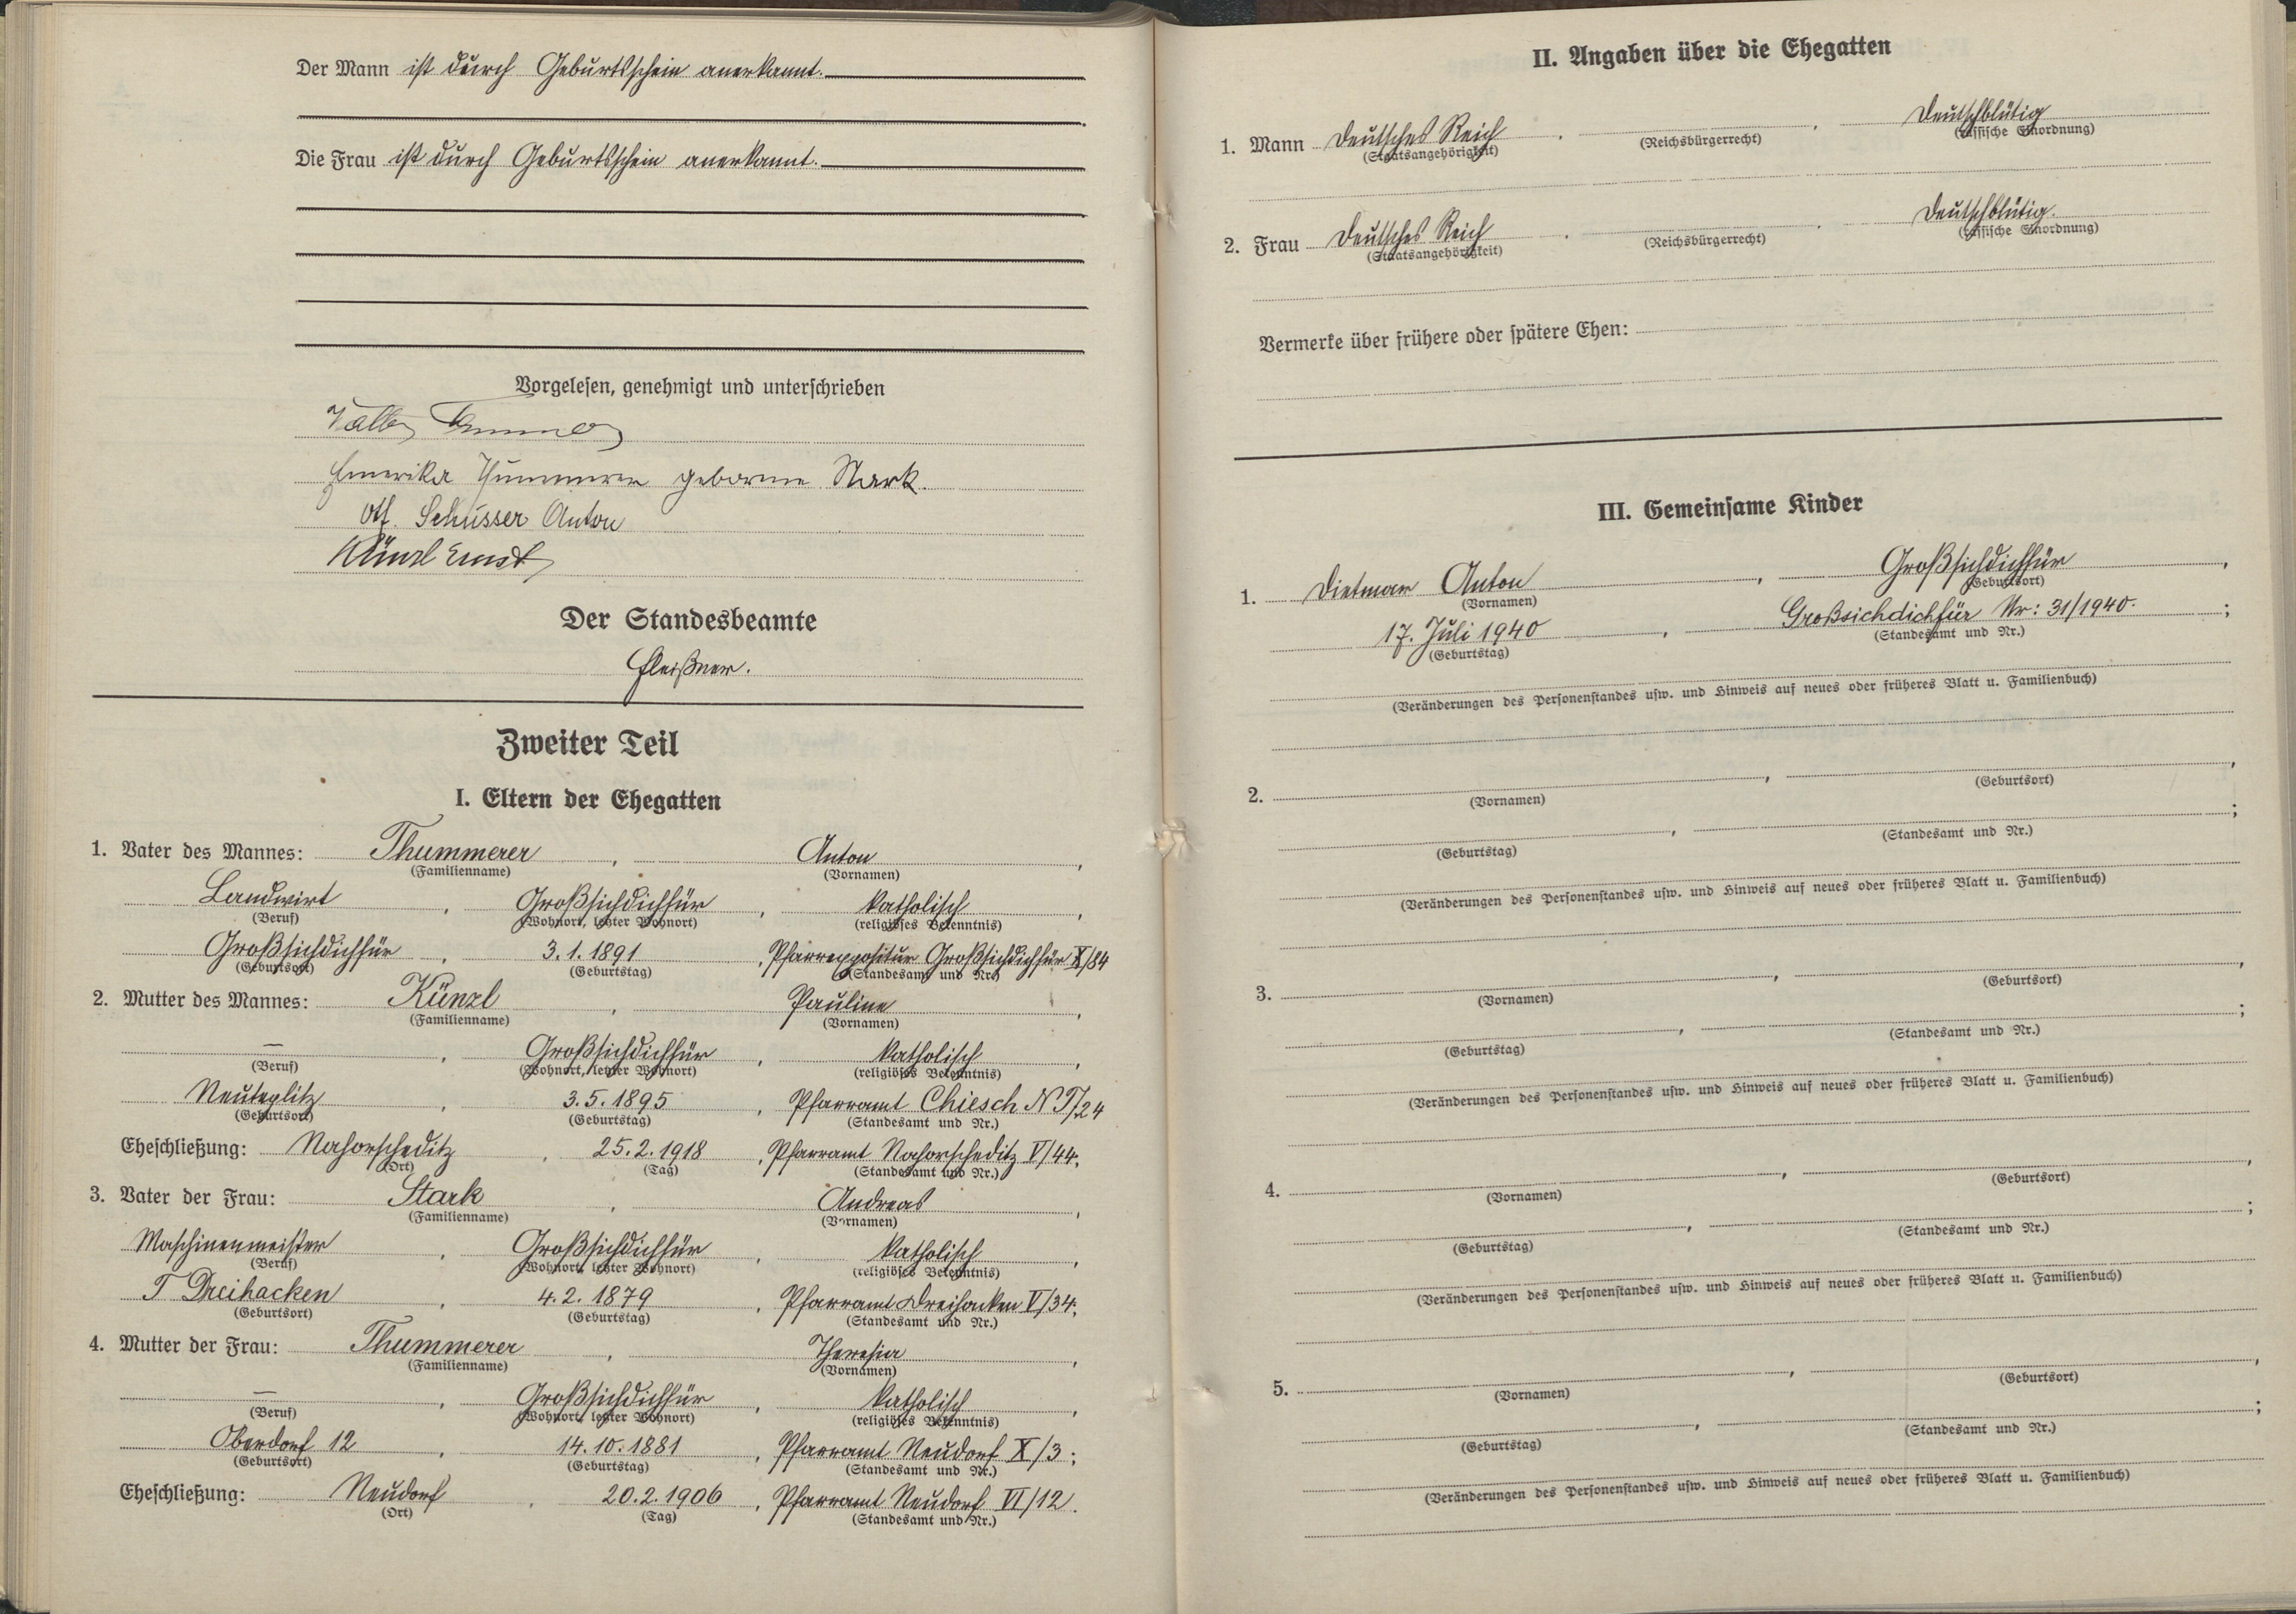 Der Mann ist durch Geburtsschein anerkannt.
Die Frau ist durch Geburtsschein anerkannt.
Vorgelesen, genehmigt und unterschrieben
Emerika Thummerer geborene Stark.
Schusser Anton
Künzl Ernst
Der Standesbeamte
Fleißner.
Zweiter Teil
I. Eltern der Ehegatten
1. Vater des Mannes: Thummerer, Anton,
(Familienname) (Vornamen)
Landwirt, Großsichdichfür, katholisch,
(Beruf) (Wohnort, letzter Wohnort) (religiöses Bekenntnis)
Großsichdichfür, 3.1.1891, Pfarrexpositur Großsichdichfür X/84
(Geburtsort) (Geburtstag) (Standesamt und Nr.)
2. Mutter des Mannes: Künzl, Pauline,
(Familienname) (Vornamen)
—, Großsichdichfür, katholisch,
(Beruf) (Wohnort, letzter Wohnort) (religiöses Bekenntnis)
Neuteplitz, 3.5.1895, Pfarramt Chiesch N T/24
(Geburtsort) (Geburtstag) (Standesamt und Nr.)
Eheschließung: Nahorscheditz, 25.2.1918, Pfarramt Nahorscheditz V/44.
(Ort) (Tag) (Standesamt und Nr.)
3. Vater der Frau: Stark, Andreas,
(Familienname) (Vornamen)
Maschinenmeister, Großsichdichfür, katholisch,
(Beruf) (Wohnort, letzter Wohnort) (religiöses Bekenntnis)
T Dreihacken, 4.2.1879, Pfarramt Dreihacken V/34;
(Geburtsort) (Geburtstag) (Standesamt und Nr.)
4. Mutter der Frau: Thummerer, Theresia,
(Familienname) (Vornamen)
—, Großsichdichfür, katholisch,
(Beruf) (Wohnort, letzter Wohnort) (religiöses Bekenntnis)
Oberdorf 12, 14.10.1881, Pfarramt Neudorf X/3;
(Geburtsort) (Geburtstag) (Standesamt und Nr.)
Eheschließung: Neudorf, 20.2.1906, Pfarramt Neudorf VI/12.
(Ort) (Tag) (Standesamt und Nr.)
II. Angaben über die Ehegatten
1. Mann Deutsches Reich, , Deutschblütig
(Staatsangehörigkeit) (Reichsbürgerrecht) (rassische Einordnung)
2. Frau Deutsches Reich, , Deutschblütig.
(Staatsangehörigkeit) (Reichsbürgerrecht) (rassische Einordnung)
Vermerke über frühere oder spätere Ehen:
III. Gemeinsame Kinder
1. Dietmar Anton, Großsichdichfür,
(Vornamen) (Geburtsort)
17. Juli 1940, Großsichdichfür Nr: 31/1940.;
(Geburtstag) (Standesamt und Nr.)
(Veränderungen des Personenstandes usw. und Hinweis auf neues oder früheres Blatt u. Familienbuch)
2. , ,
(Vornamen) (Geburtsort)
, ;
(Geburtstag) (Standesamt und Nr.)
(Veränderungen des Personenstandes usw. und Hinweis auf neues oder früheres Blatt u. Familienbuch)
3. , ,
(Vornamen) (Geburtsort)
, ;
(Geburtstag) (Standesamt und Nr.)
(Veränderungen des Personenstandes usw. und Hinweis auf neues oder früheres Blatt u. Familienbuch)
4. , ,
(Vornamen) (Geburtsort)
, ;
(Geburtstag) (Standesamt und Nr.)
(Veränderungen des Personenstandes usw. und Hinweis auf neues oder früheres Blatt u. Familienbuch)
5. , ,
(Vornamen) (Geburtsort)
, ;
(Geburtstag) (Standesamt und Nr.)
(Veränderungen des Personenstandes usw. und Hinweis auf neues oder früheres Blatt u. Familienbuch)